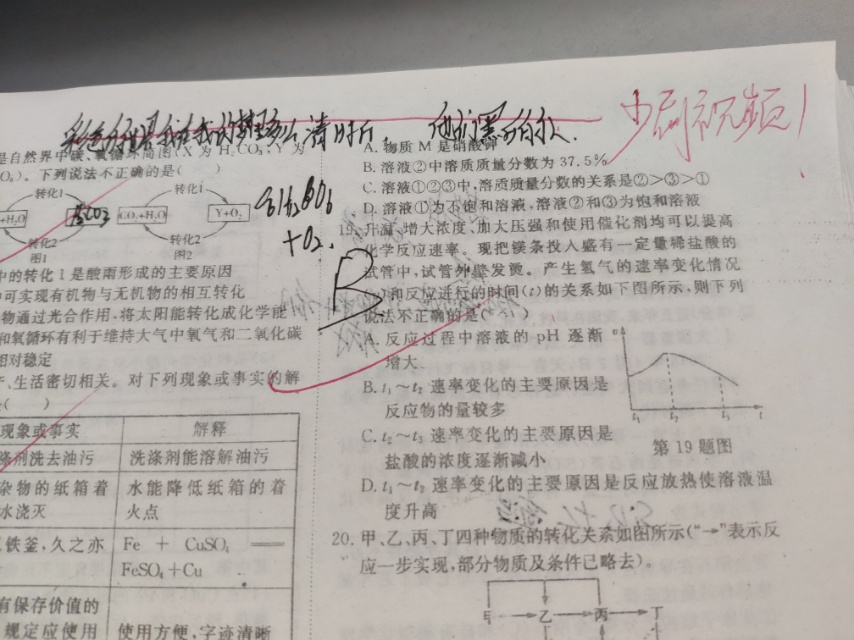 少刷视频!
是自然界中碳、氧循环简图(X 为 H₂CO₃,Y 为
下列说法不正确的是(　　)
转化1
转化1
+H₂O
CO₂+H₂O
Y+O₂
转化2
图1
转化2
图2
+O₂
B
中的转化 1 是酸雨形成的主要原因
中可实现有机物与无机物的相互转化
物通过光合作用,将太阳能转化成化学能
和氧循环有利于维持大气中氧气和二氧化碳
相对稳定
生活密切相关。对下列现象或事实的解
(　　)
现象或事实
解释
涤剂洗去油污
洗涤剂能溶解油污
杂物的纸箱着
水浇灭
水能降低纸箱的着
火点
铁釜,久之亦
Fe + CuSO₄ ——
FeSO₄+Cu
有保存价值的
规定应使用
使用方便,字迹清晰
A. 物质 M 是硝酸钾
B. 溶液②中溶质质量分数为 37.5%
C. 溶液①②③中,溶质质量分数的关系是②>③>①
D. 溶液①为不饱和溶液,溶液②和③为饱和溶液
19. 升温、增大浓度、加大压强和使用催化剂均可以提高
化学反应速率。现把镁条投入盛有一定量稀盐酸的
试管中,试管外壁发烫。产生氢气的速率变化情况
和反应进行的时间(t)的关系如下图所示,则下列
说法不正确的是(　　)
A. 反应过程中溶液的 pH 逐渐
增大
B. t₁～t₂ 速率变化的主要原因是
反应物的量较多
C. t₂～t₃ 速率变化的主要原因是
盐酸的浓度逐渐减小
D. t₁～t₂ 速率变化的主要原因是反应放热使溶液温
度升高
v
t₁ t₂ t₃ t
第 19 题图
20. 甲、乙、丙、丁四种物质的转化关系如图所示(“→”表示反
应一步实现,部分物质及条件已略去)。
甲 乙 丙 丁